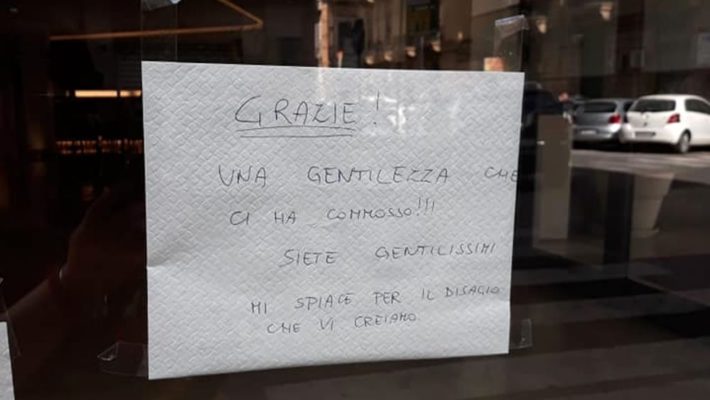 GRAZIE!
UNA GENTILEZZA CHE
CI HA COMMOSSO!!!
SIETE GENTILISSIMI
MI SPIACE PER IL DISAGIO
CHE VI CREIAMO.